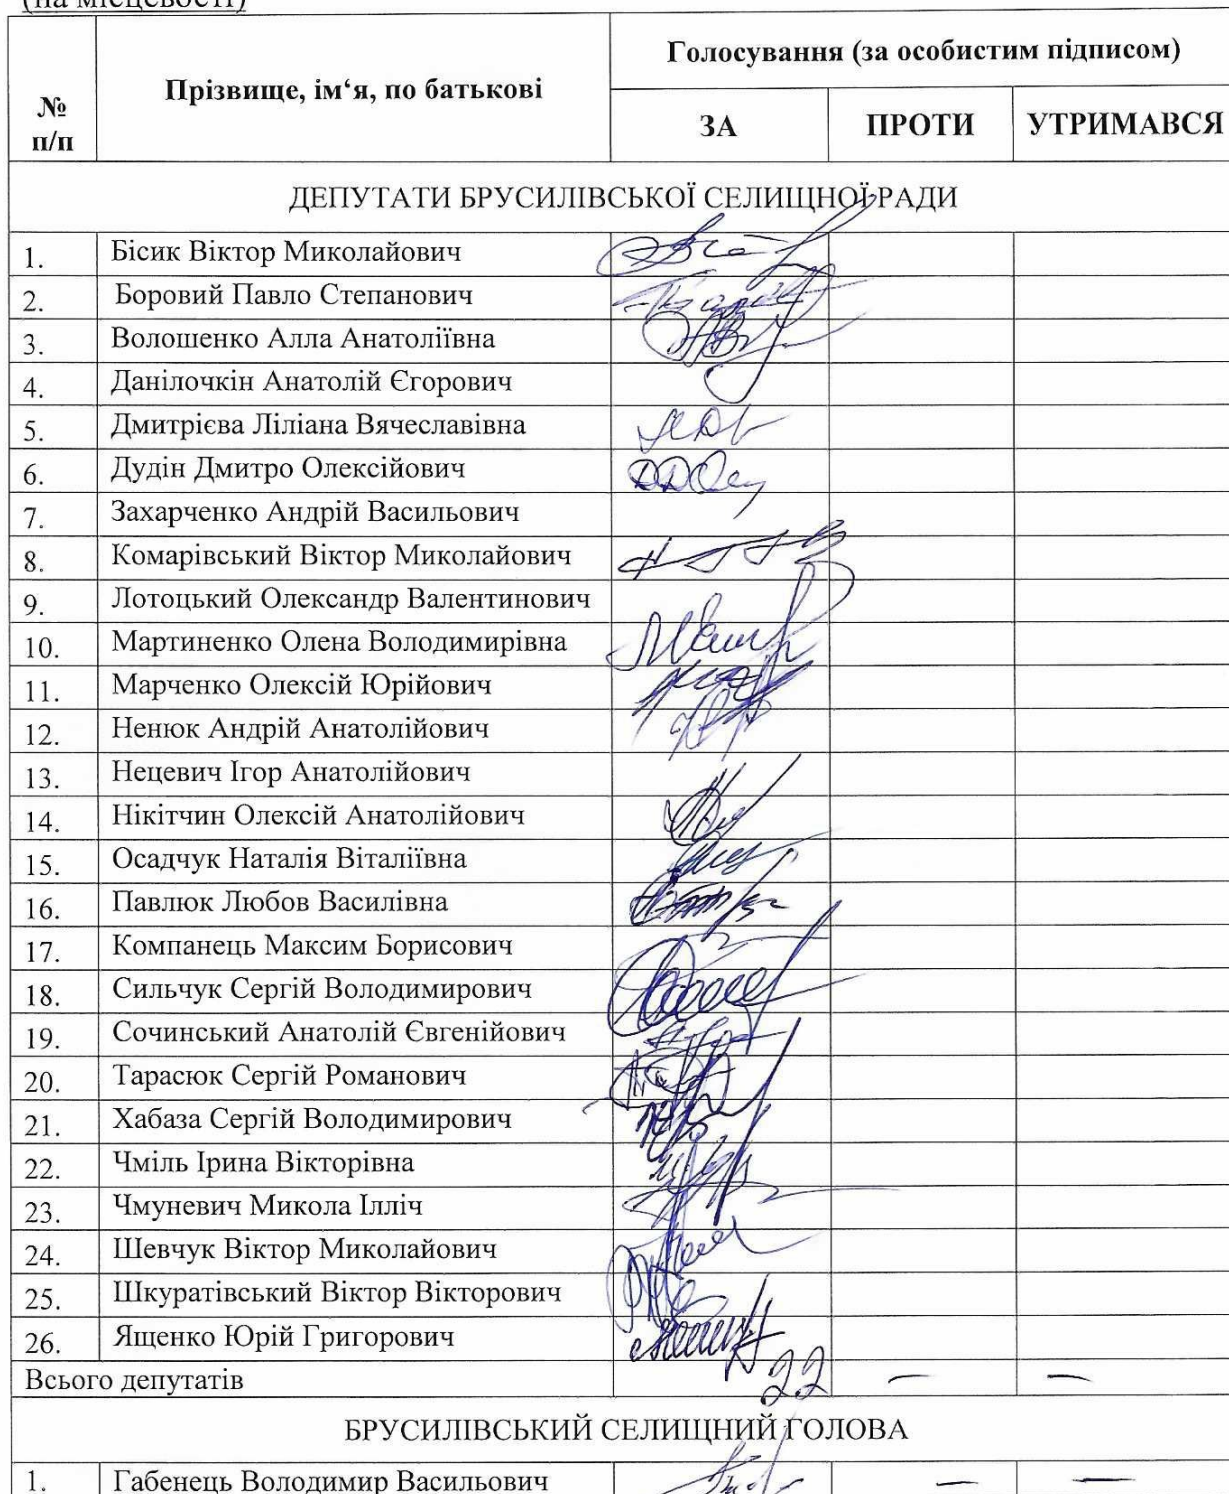 (на місцевості)
№ п/п
Прізвище, ім‘я, по батькові
Голосування (за особистим підписом)
ЗА ПРОТИ УТРИМАВСЯ
ДЕПУТАТИ БРУСИЛІВСЬКОЇ СЕЛИЩНОЇ РАДИ
1. Бісик Віктор Миколайович
2. Боровий Павло Степанович
3. Волошенко Алла Анатоліївна
4. Данілочкін Анатолій Єгорович
5. Дмитрієва Ліліана Вячеславівна
6. Дудін Дмитро Олексійович
7. Захарченко Андрій Васильович
8. Комарівський Віктор Миколайович
9. Лотоцький Олександр Валентинович
10. Мартиненко Олена Володимирівна
11. Марченко Олексій Юрійович
12. Ненюк Андрій Анатолійович
13. Нецевич Ігор Анатолійович
14. Нікітчин Олексій Анатолійович
15. Осадчук Наталія Віталіївна
16. Павлюк Любов Василівна
17. Компанець Максим Борисович
18. Сильчук Сергій Володимирович
19. Сочинський Анатолій Євгенійович
20. Тарасюк Сергій Романович
21. Хабаза Сергій Володимирович
22. Чміль Ірина Вікторівна
23. Чмуневич Микола Ілліч
24. Шевчук Віктор Миколайович
25. Шкуратівський Віктор Вікторович
26. Ященко Юрій Григорович
Всього депутатів 22 — —
БРУСИЛІВСЬКИЙ СЕЛИЩНИЙ ГОЛОВА
1. Габенець Володимир Васильович — —